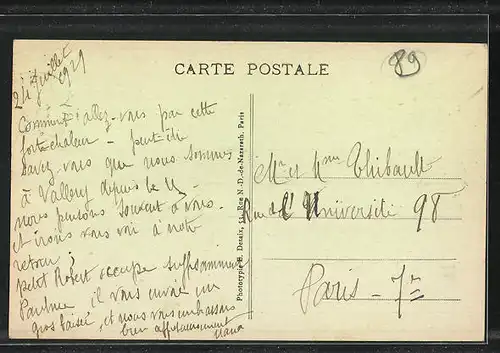 89
CARTE POSTALE
24 Juillet
1929
Comment allez-vous par cette
forte chaleur - peut-être
savez-vous que nous sommes
à Vallery depuis le
nous pensons souvent à vous.
et irons vous voir à notre
retour ;
petit Robert occupe suffisamment
Paulnee il vous envoie un
gros baiser, et nous vous embrassons
bien affectueusement
Phototypie E. Desaix, Rue N.-D.-de-Nazareth, Paris
Mr et Mme Thibault
Rue de l'Université 98
Paris - 7e